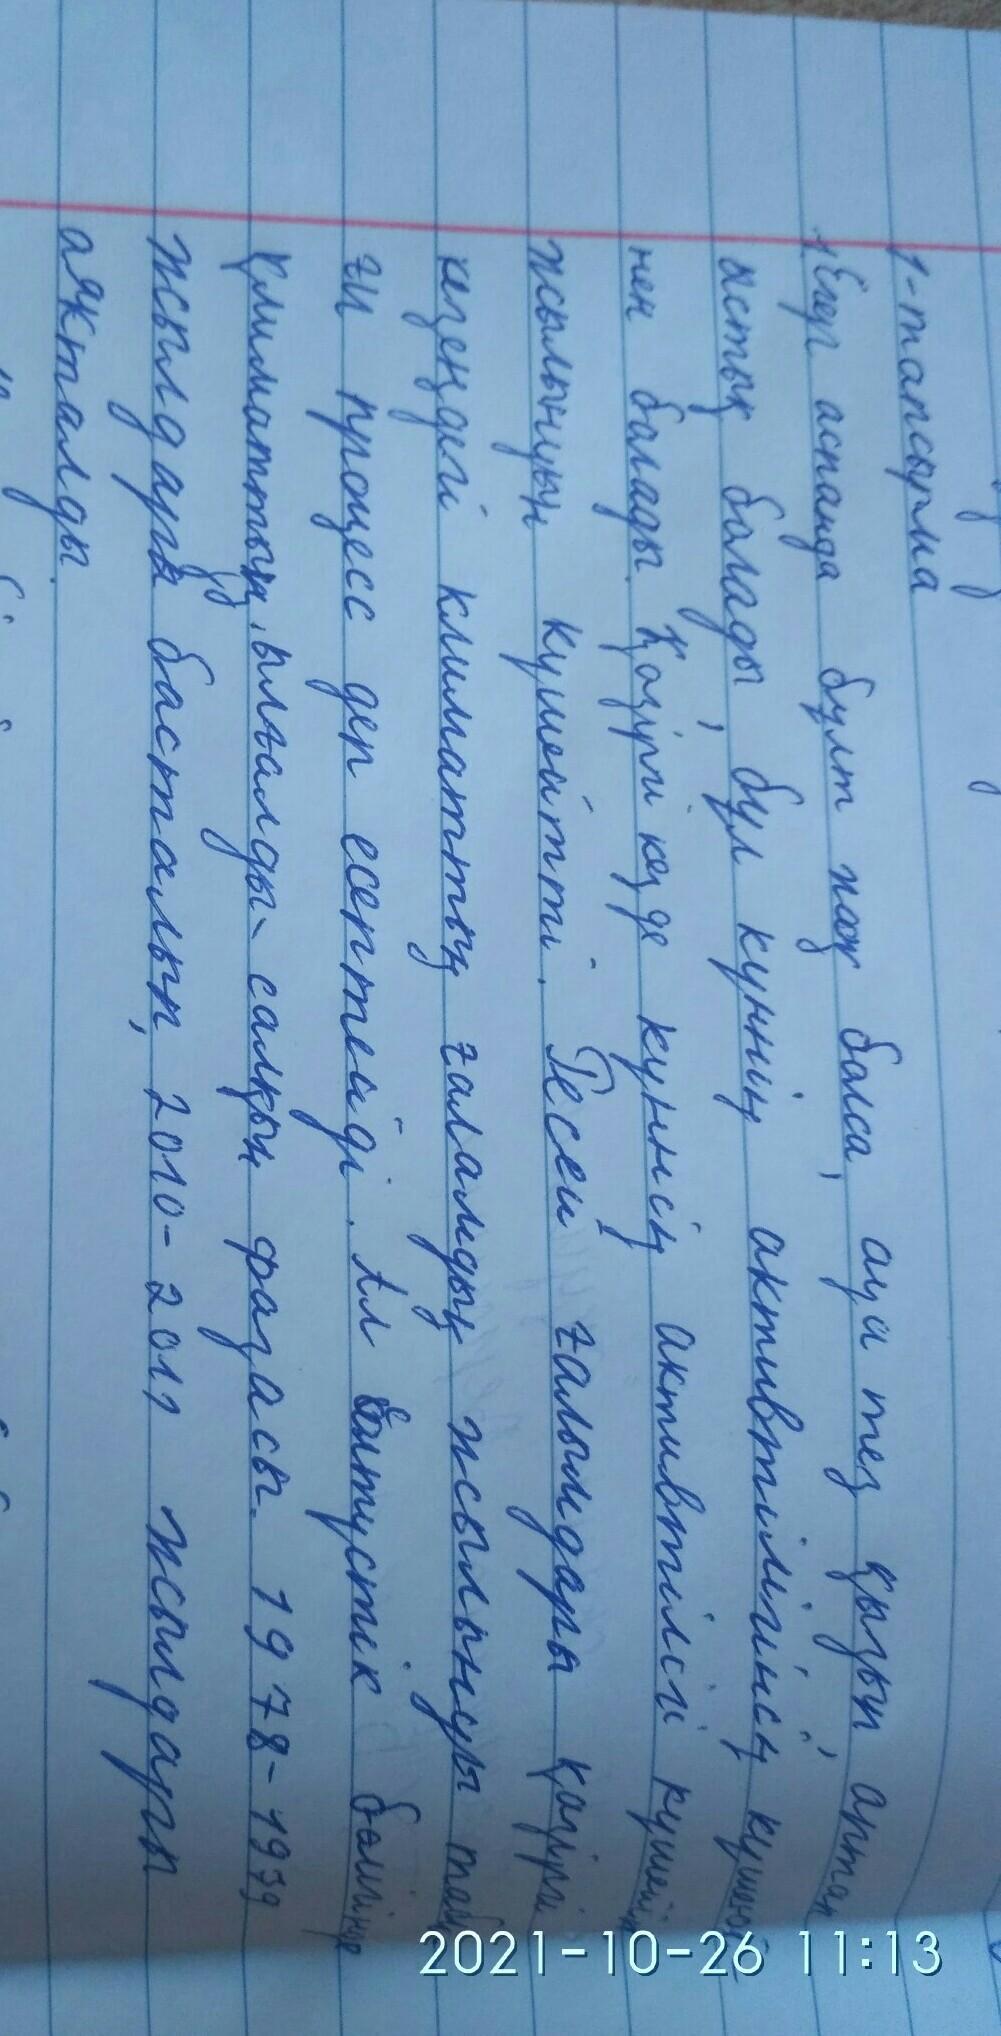 1-тапсырма
1. Егер аспанда бұлт көп болса, ауа тез қызып, артық
ыстық болады, бұл күннің активтілігінің күшеюі-
нен болады. Қазіргі кезде күннің активтілігі күшейіп
жылынуын күшейтті. Ресей ғалымдары қазіргі
кезеңдегі климаттың ғаламдық жылынуы таби
ғи процесс деп есептейді. Ал Солтүстік бөлігінде
климаттың ылғалды-салқын фазасы 1978-1979
жылдары басталып, 2010-2011 жылдары
аяқталды.
2021-10-26 11:13